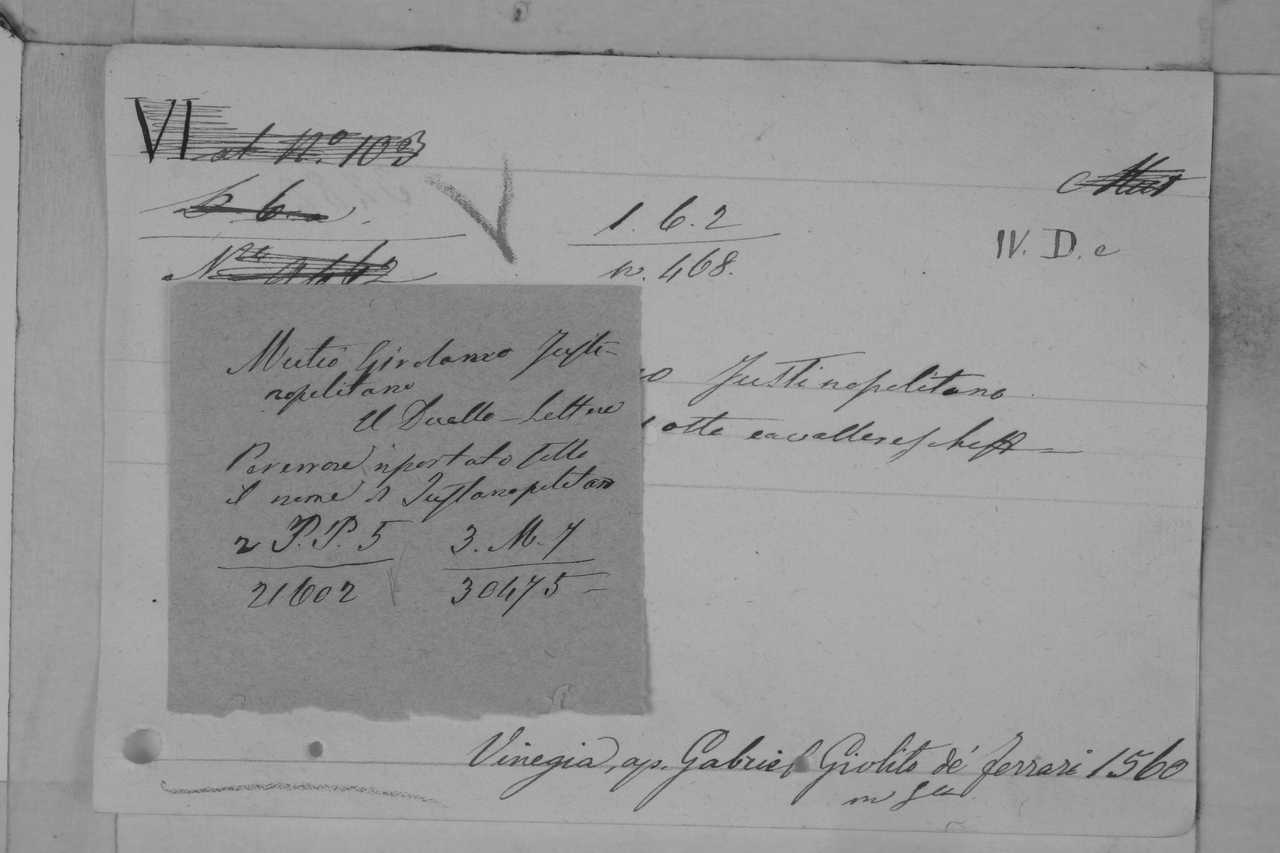 VI al N.º 103
b 6
1. 6. 2
IV. D. c
n. 468.
Mutio Girolamo Justi-
nopolitano
Il Duello – Lettere
Per errore riportato sotto
il nome di Justanopolitano
2 P.P. 5 3. M. 7
21602 30475
o Justinopolitano
otte cavalleresche
Vinegia, ap. Gabriel Giolito dé ferrari 1560